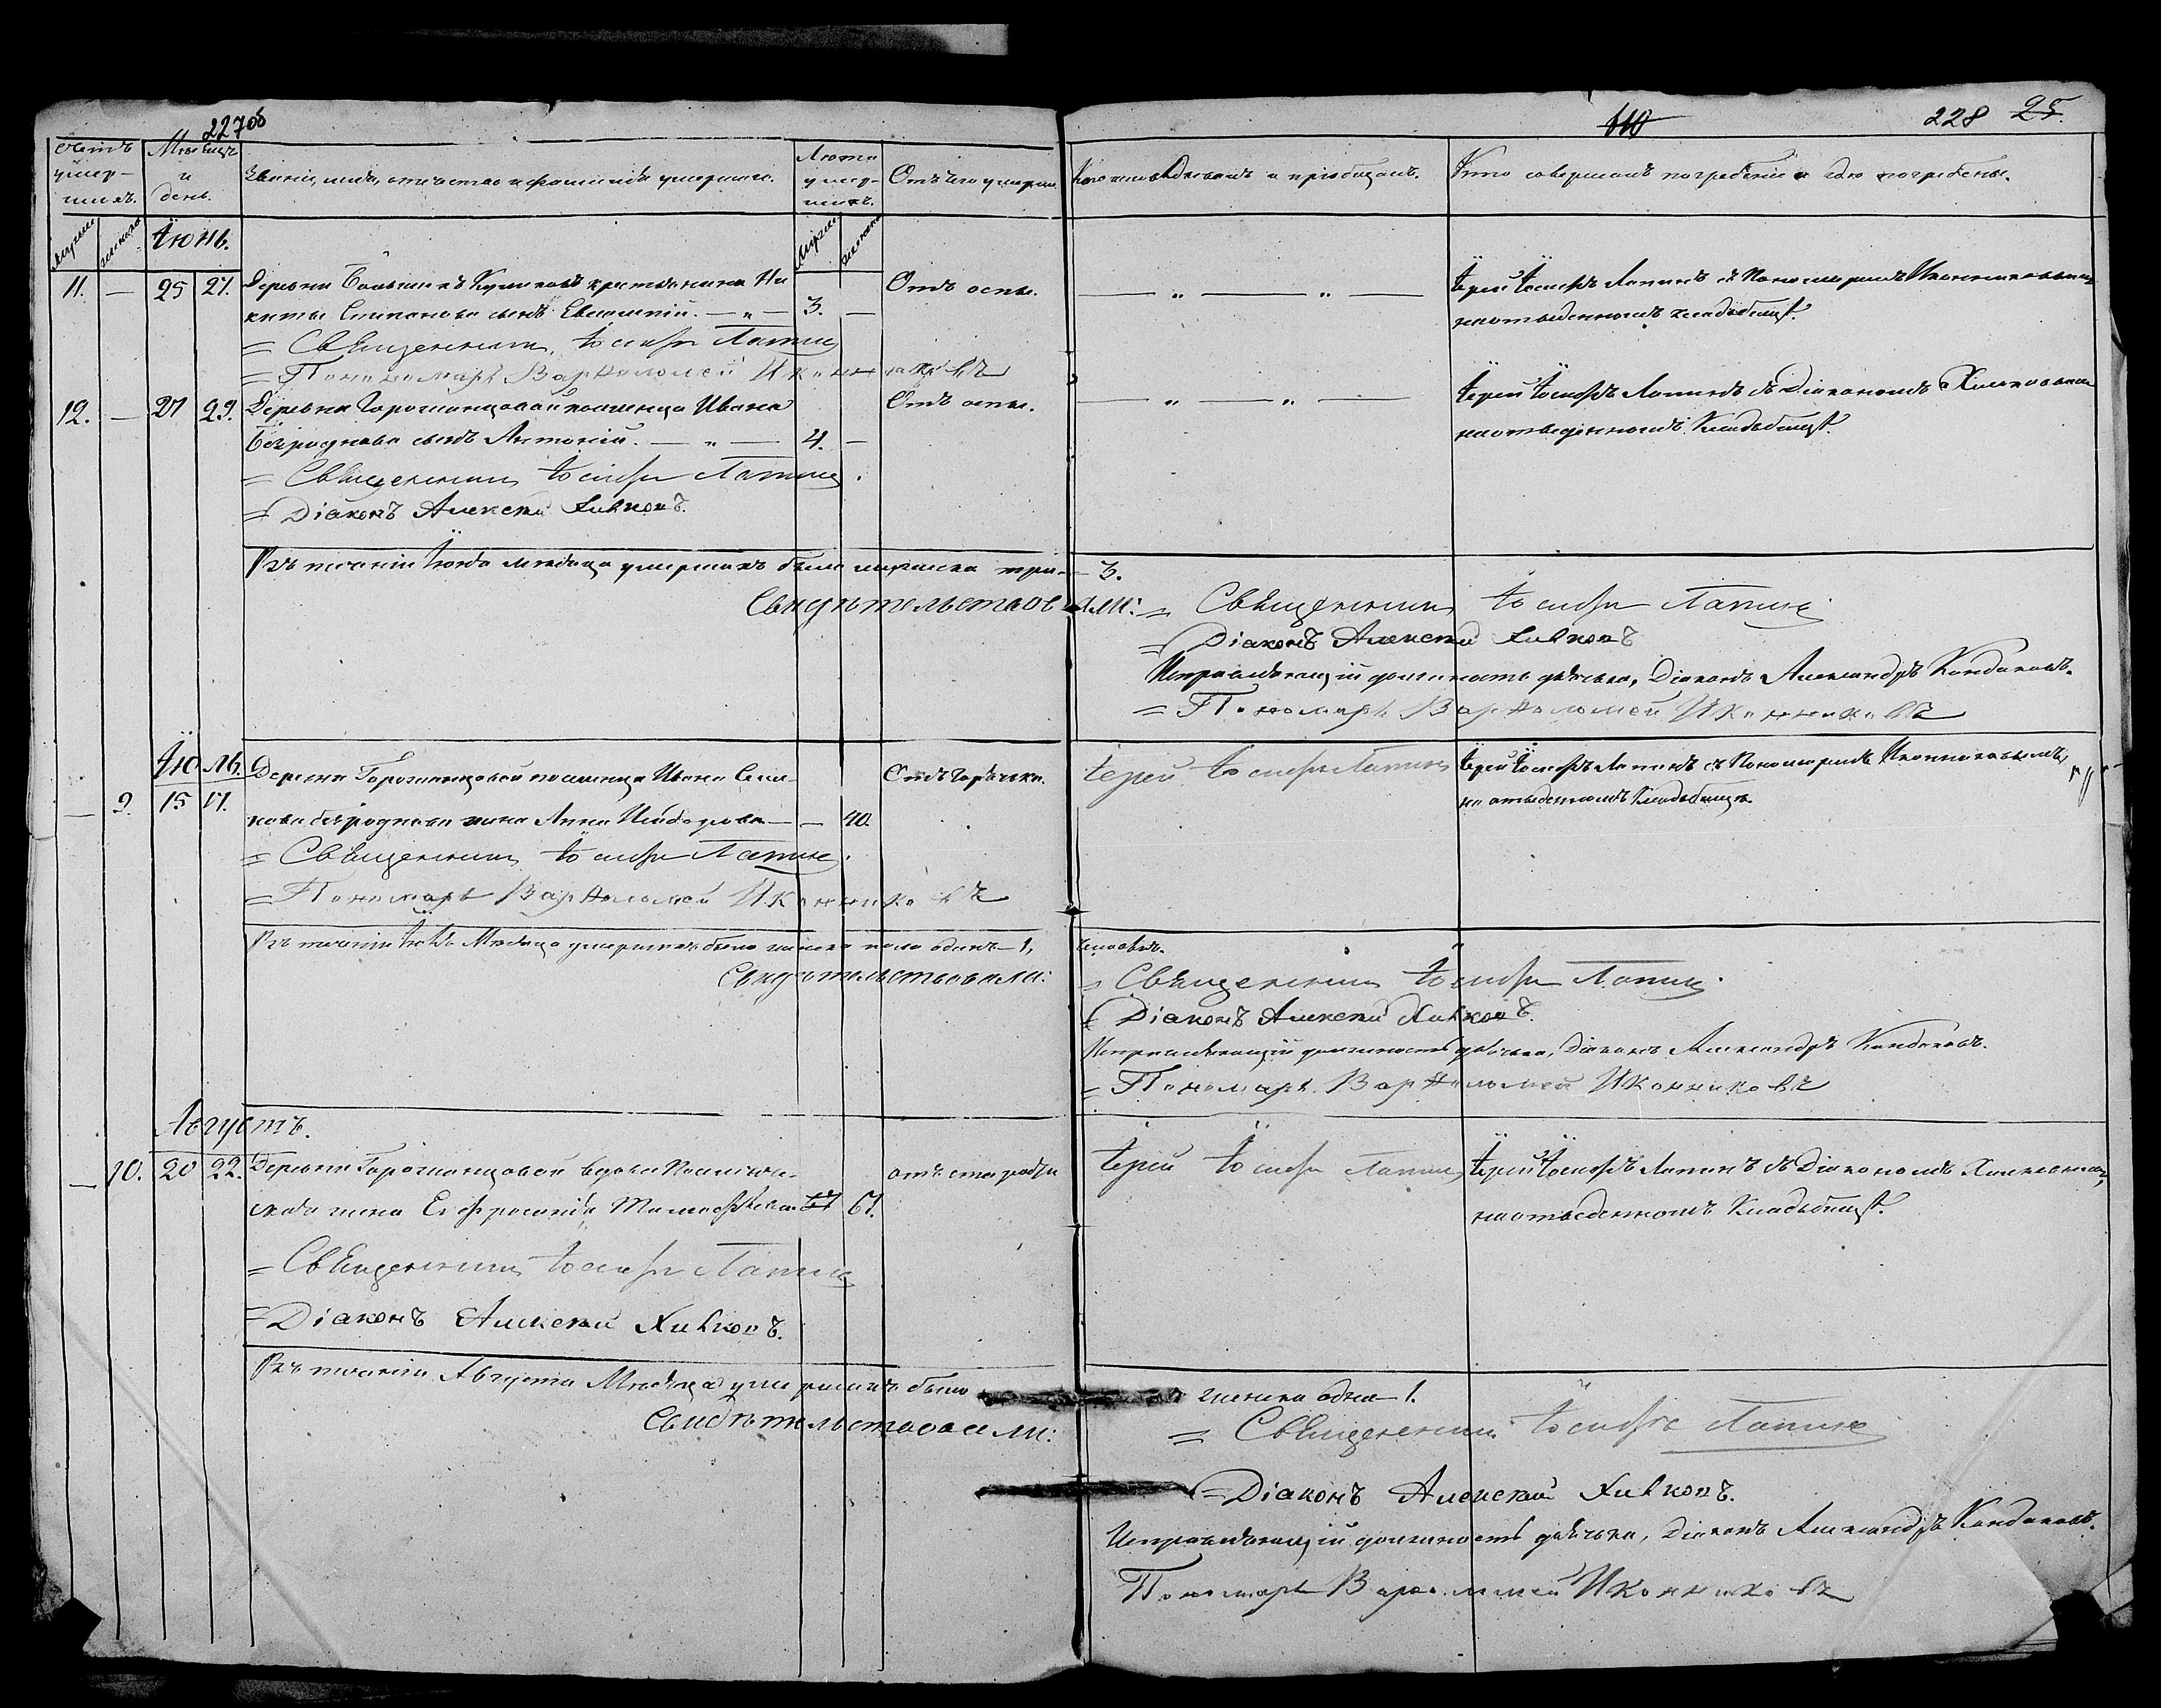 227об
Счетъ умер-шихъ. Мѣсяцъ и день. Званіе, имя, отчество и фамилія умершаго. Лѣта умер-шихъ. Отъ чего умеръ.
мужеска женска Іюнь. мужеска женска
11. — 25 27. Деревни крестьянина Ни-
киты Степанова сынъ Евгеній. — „ — 3. — Отъ оспы.
= Священникъ Іосифъ Лапинъ
= Пономарь Варѳоломей Иконниковъ
12. — 27 29. Деревни поселенца Ивана Отъ оспы.
Безроднова сынъ Антоній. — „ — 4. —
= Священникъ Іосифъ Лапинъ.
= Діаконъ Алексѣй Хивковъ.
Въ теченіи Іюня мѣсяца умершихъ было мужеска три —
Свидѣтельствов
Іюль. Деревни поселенца Ивана Отъ горячки.
— 9. 15 17.
безроднова жена Анна — — 40.
= Священникъ Іосифъ Лапинъ.
= Пономарь Варѳоломей Иконниковъ
Въ теченіи Іюля Мѣсяца умершихъ было женска пола одинъ — 1,
Свидѣтельствовали:
Августъ.
— 10. 20 22. Деревни вдова отъ старости
жена Евфросинія 67.
= Священникъ Іосифъ Лапинъ
= Діаконъ Алексѣй Хивковъ.
Въ теченіи Августа Мѣсяца умершихъ было
Свидѣтельствовали:
110 228 25
Кто исповѣдывалъ и пріобщалъ. Кто совершалъ погребеніе и гдѣ погребены.
— „ — „ — Іерей Іосифъ Лапинъ съ Пономаремъ Иконниковымъ
на отведенномъ кладбищѣ.
— „ — „ — Іерей Іосифъ Лапинъ съ Діакономъ Хивковымъ
на отведенномъ Кладбищѣ.
3.
али: = Священникъ Іосифъ Лапинъ
= Діаконъ Алексѣй Хивковъ
Исправляющій должность дьячка, Діаконъ Александръ Кандаковъ.
= Пономарь Варѳоломей Иконниковъ
Іерей Іосифъ Лапинъ Іерей Іосифъ Лапинъ съ Пономаремъ Иконниковымъ,
на отведенномъ Кладбищѣ.
человѣкъ.
= Священникъ Іосифъ Лапинъ.
= Діаконъ Алексѣй Хивковъ.
Исправляющій должность дьячка, Діаконъ Александръ Кандаковъ.
= Пономарь Варѳоломей Иконниковъ
Іерей Іосифъ Лапинъ Іерей Іосифъ Лапинъ съ Діакономъ Хивковымъ,
на отведенномъ Кладбищѣ.
женска одна — 1.
= Священникъ Іосифъ Лапинъ
= Діаконъ Алексѣй Хивковъ.
Исправляющій должность дьячка, Діаконъ Александръ Кандаковъ.
Пономарь Варѳоломей Иконниковъ